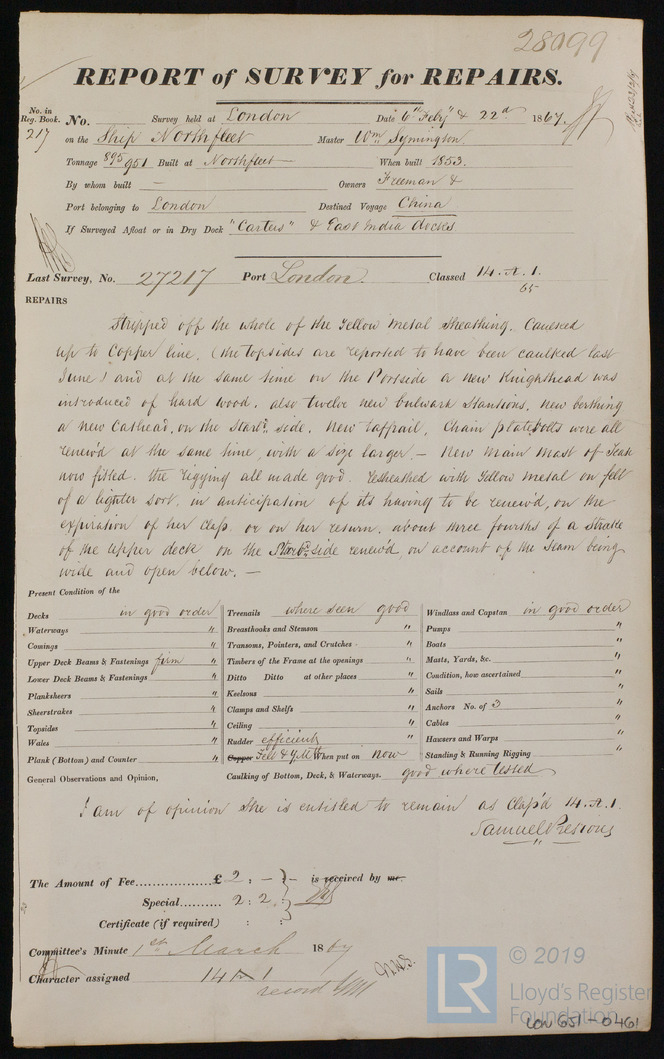 28099
REPORT of SURVEY for REPAIRS.
No. in Reg. Book. No. Survey held at London Date 6th Feby & 22nd 1867.
217 on the Ship Northfleet Master Wm Symington
Tonnage 895 951 Built at Northfleet When built 1853.
By whom built — Owners Freeman &
Port belonging to London Destined Voyage China
If Surveyed Afloat or in Dry Dock "Carters" & East India docks
Last Survey, No. 27217 Port London. Classed 14. A. 1.
65
REPAIRS
Stripped off the whole of the Yellow Metal Sheathing. Caulked
up to Copper line, (the topsides are reported to have been caulked last
June) and at the same time on the Portside a new Knighthead was
introduced of hard wood, also twelve new bulwark Stansions, new berthing
a new Cathead, on the Starbd. side. New taffrail, Chain plate bolts were all
renew'd at the same time, with a size larger. — New Main Mast of Teak
now fitted. the rigging all made good. Resheathed with Yellow Metal on felt
of a lighter sort, in anticipation of its having to be renew'd, on the
expiration of her Class. or on her return. about three fourths of a Strake
of the upper deck on the Starbd. side renew'd, on account of the seam being
wide and open below. —
Present Condition of the
Decks in good order Treenails where seen good Windlass and Capstan in good order
Waterways " Breasthooks and Stemson " Pumps "
Comings " Transoms, Pointers, and Crutches " Boats "
Upper Deck Beams & Fastenings firm " Timbers of the Frame at the openings " Masts, Yards, &c. "
Lower Deck Beams & Fastenings " Ditto Ditto at other places " Condition, how ascertained "
Planksheers " Keelsons " Sails "
Sheerstrakes " Clamps and Shelfs " Anchors No. of 3 "
Topsides " Ceiling " Cables "
Wales " Rudder efficient " Hawsers and Warps "
Plank (Bottom) and Counter " Copper Felt & Y.M When put on now Standing & Running Rigging "
General Observations and Opinion, Caulking of Bottom, Deck, & Waterways. good where tested
I am of opinion She is entitled to remain as Class'd 14. A. 1.
Samuel Presious
The Amount of Fee............... £ 2 : — } — is received by me.
Special.......... 2 : 2 }
Certificate (if required) : : }
Committee's Minute 1st March 1867
Character assigned 14 A 1
record
© 2019
LR
Lloyd's Register
Foundation
LON 651-0461